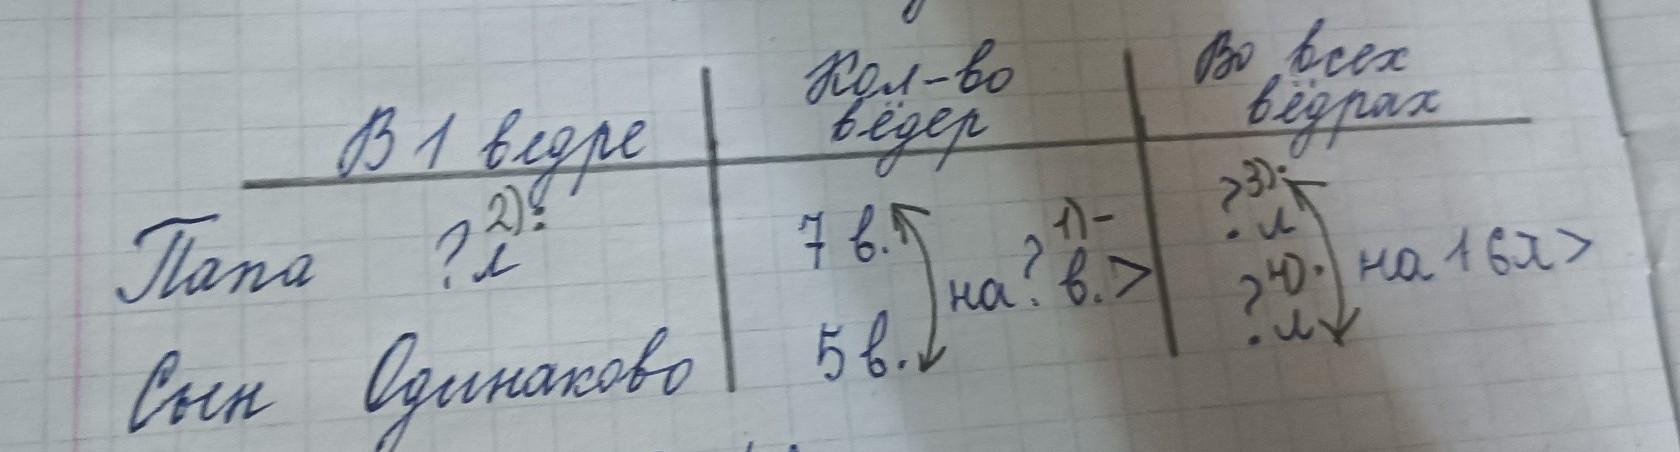 В 1 ведре Кол-во вёдер Во всех вёдрах
Папа ? л 2): 7 в. на ? в. > 1) - ? л 3)· на 16 л >
Сын Одинаково 5 в. ? л 4)·